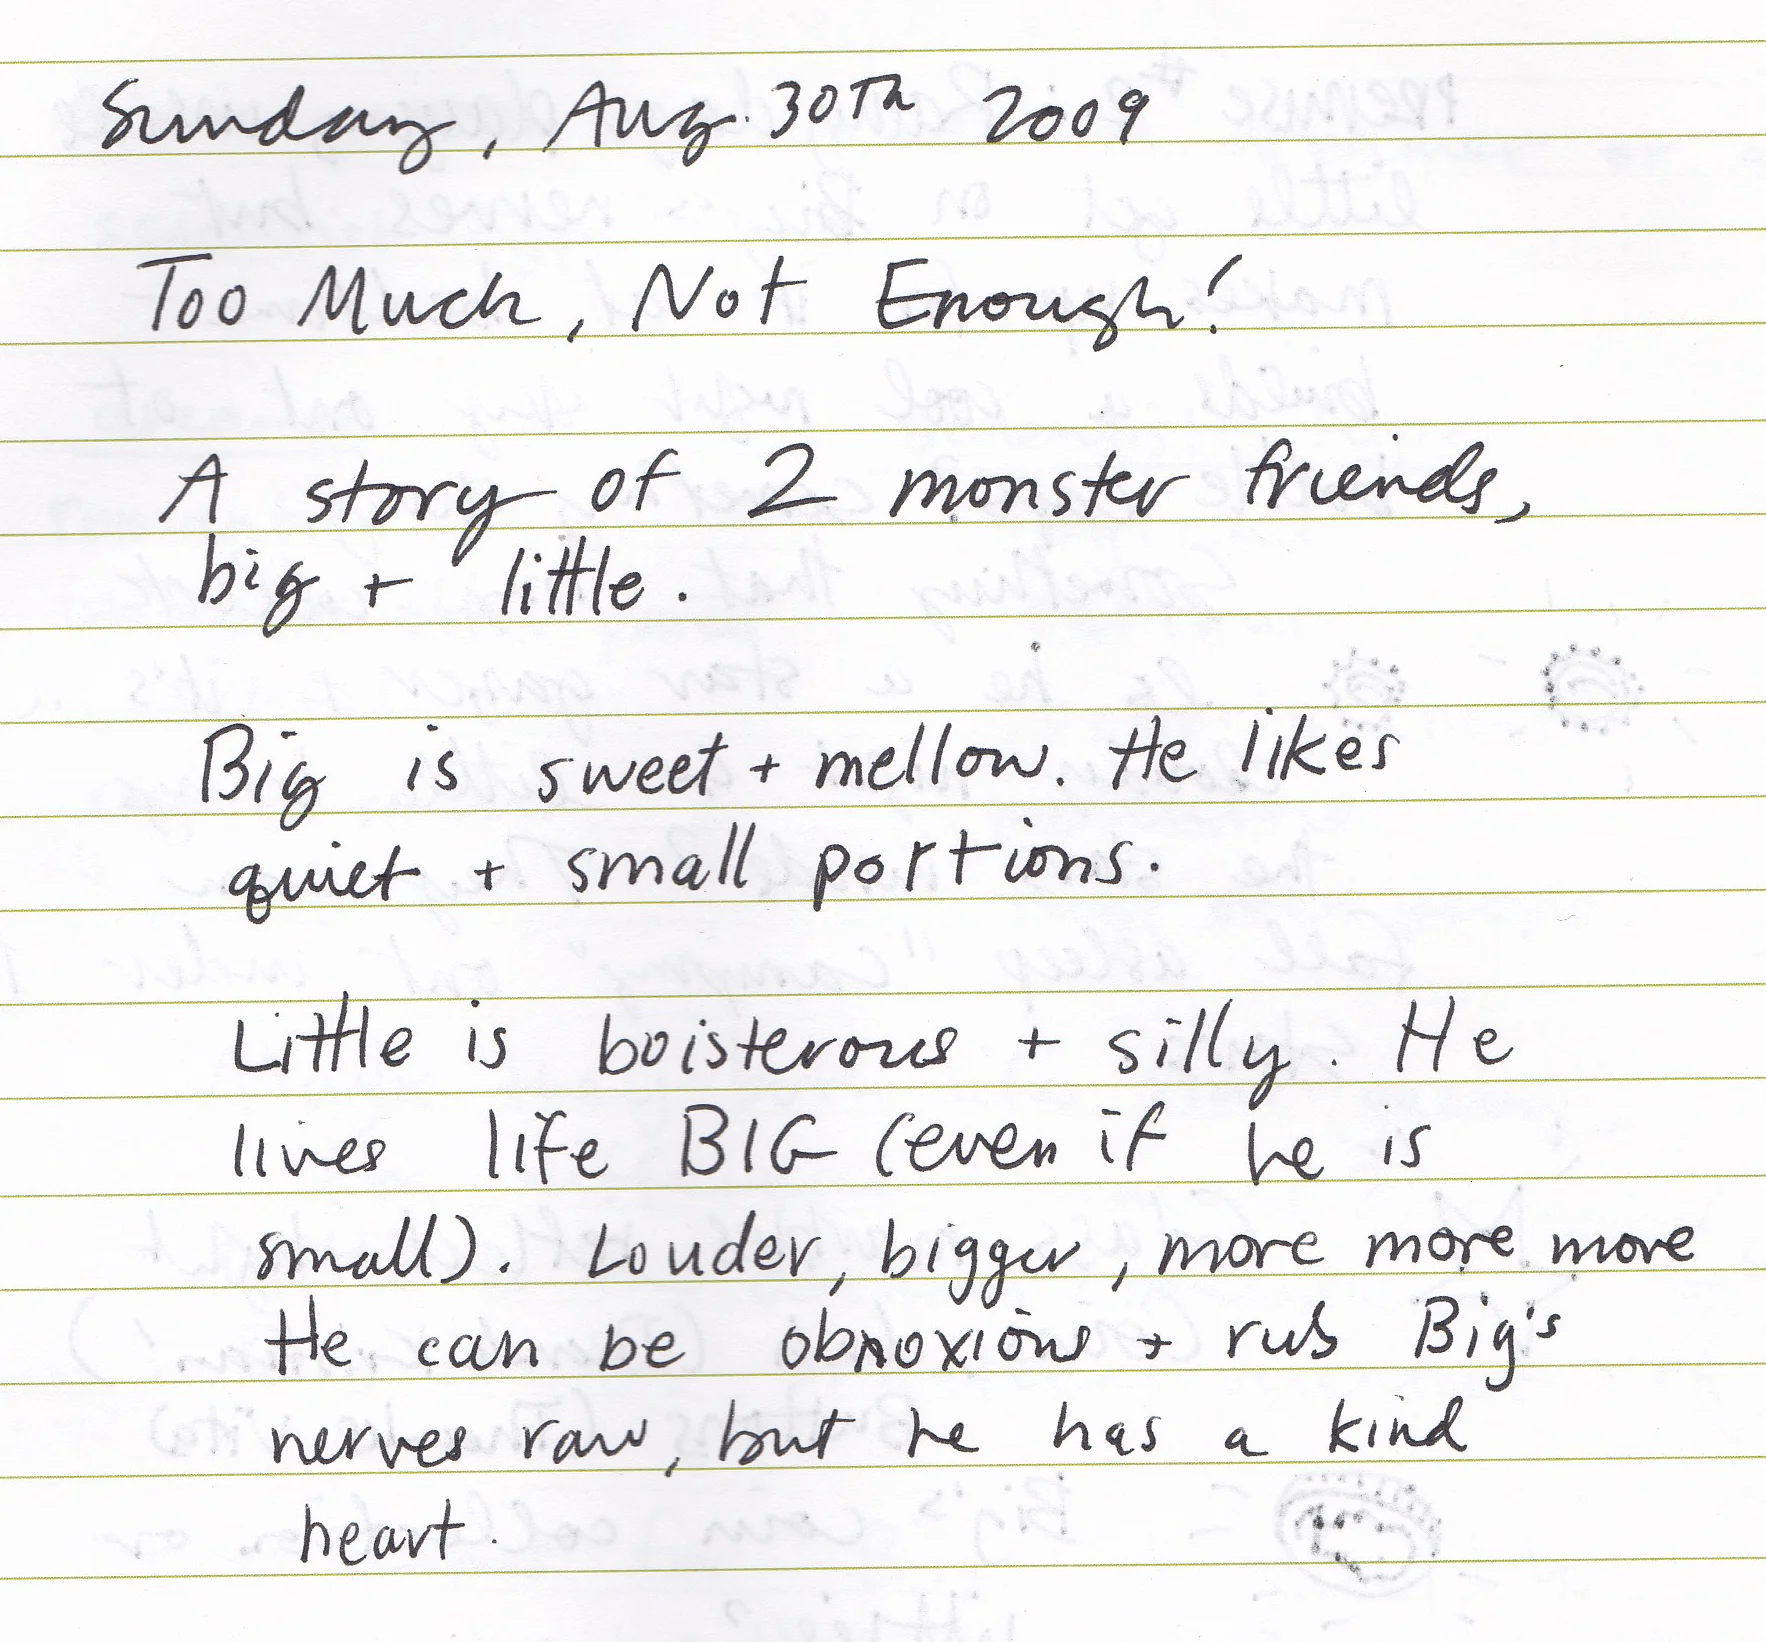 Sunday, Aug. 30Th 2009
Too Much, Not Enough!
A story of 2 monster friends,
big + little.
Big is sweet + mellow. He likes
quiet + small portions.
Little is boisterous + silly. He
lives life BIG (even if he is
small). Louder, bigger, more more more
He can be obnoxious + rub Big's
nerves raw, but he has a kind
heart.